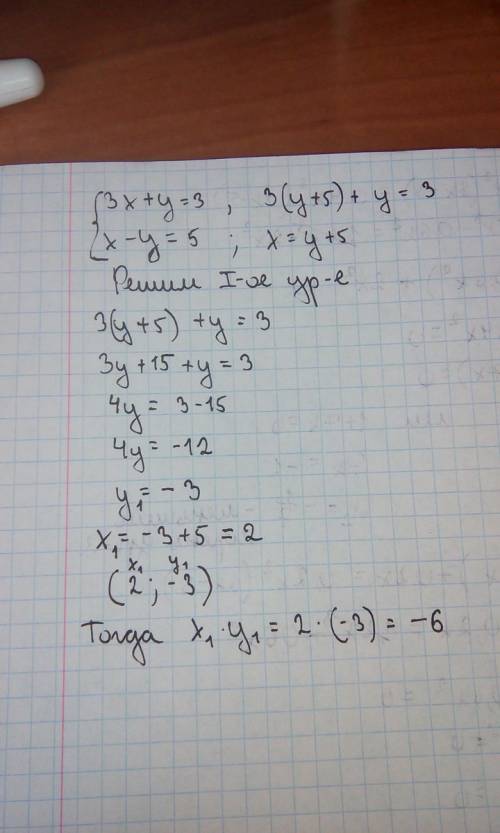 {3x+y=3 , 3(y+5)+ y = 3
x-y=5 ; x=y+5
Решим I-ое ур-е
3(y+5) +y = 3
3y+15+y=3
4y= 3-15
4y= -12
y₁= -3
x₁= -3+5 = 2
x₁ y₁
(2; -3)
Тогда x₁·y₁ = 2·(-3)= -6